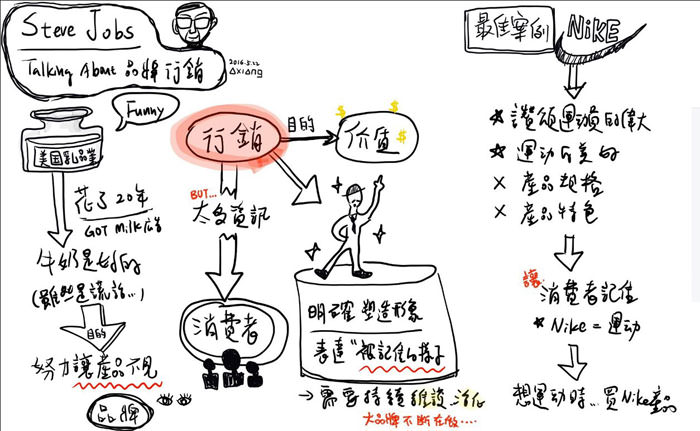 Steve Jobs
Talking About 品牌行銷
2016.5.22
Axiang
Funny
美国乳品業
花了20年
GOT Milk广告
牛奶是好的
(雖然是謊話...)
目的
努力讓產品不見
品牌
行銷
目的
价值
$ $ $
BUT...
太多資訊
消費者
明確塑造形象
表達"被記住的樣子
→需要持續維護 活化
大品牌不断在做....
最佳案例
NiKE
★讚頌運動員的偉大
★運动 美的
×產品規格
×產品特色
讓
消費者記住
★Nike = 运动
想运动時..買Nike產品